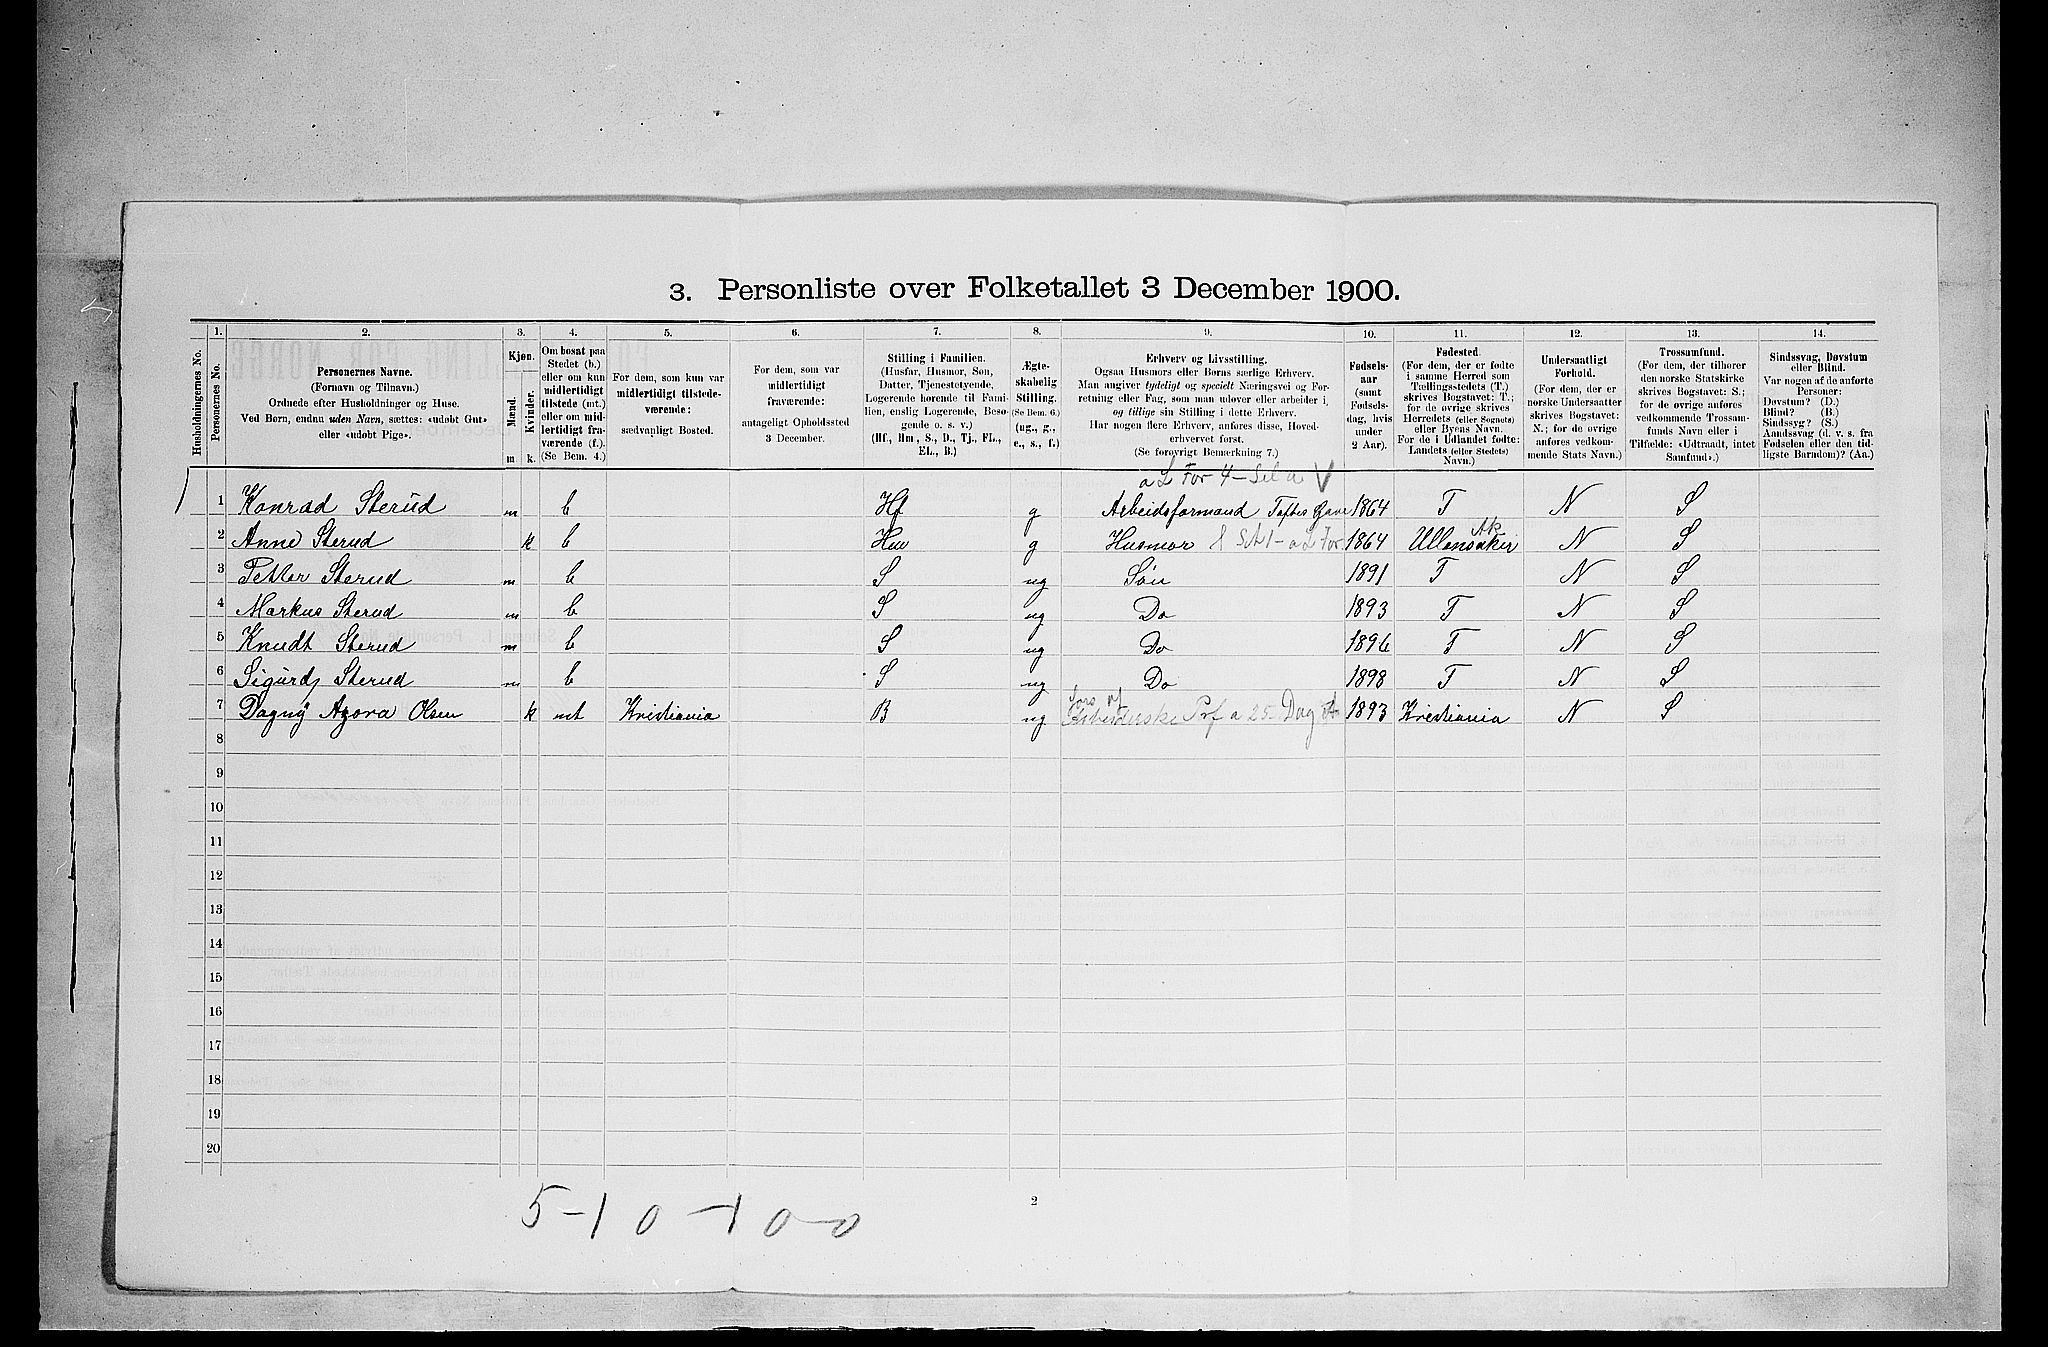 3. Personliste over Folketallet 3 December 1900.
1. 2. 3. 4. 5. 6. 7. 8. 9. 10. 11. 12. 13. 14.
Husholdningernes No.
Personernes No.
Personernes Navne.
(Fornavn og Tilnavn.)
Ordnede efter Husholdninger og Huse.
Ved Børn, endnu uden Navn, sættes: «udøbt Gut»
eller «udøbt Pige».
Kjøn.
Mænd.
Kvinder.
m k.
Om bosat paa
Stedet (b.)
eller om kun
midlertidigt
tilstede (mt.)
eller om mid-
lertidigt fra-
værende (f.)
(Se Bem. 4.)
For dem, som kun var
midlertidigt tilstede-
værende:
sædvanligt Bosted.
For dem, som var
midlertidigt
fraværende:
antageligt Opholdssted
3 December.
Stilling i Familien.
(Husfar, Husmor, Søn,
Datter, Tjenestetyende,
Logerende hørende til Fami-
lien, enslig Logerende, Besø-
gende o. s. v.)
(Hf., Hm., S., D., Tj., FL.,
EL., B.)
Ægte-
skabelig
Stilling.
(Se Bem. 6.)
(ug., g.,
e., s., f.)
Erhverv og Livsstilling.
Ogsaa Husmors eller Børns særlige Erhverv.
Man angiver tydeligt og specielt Næringsvei og For-
retning eller Fag, som man udøver eller arbeider i,
og tillige sin Stilling i dette Erhverv.
Har nogen flere Erhverv, anføres disse, Hoved-
erhvervet først.
(Se forøvrigt Bemærkning 7.)
Fødsels-
aar
(samt
Fødsels-
dag, hvis
under
2 Aar).
Fødested.
(For dem, der er fødte
i samme Herred som
Tællingsstedets (T.)
skrives Bogstavet: T.;
for de øvrige skrives
Herredets (eller Sognets)
eller Byens Navn.
For de i Udlandet fødte:
Landets (eller Stedets)
Navn.)
Undersaatligt
Forhold.
(For dem, der er
norske Undersaatter
skrives Bogstavet:
N.; for de øvrige
anføres vedkom-
mende Stats Navn.)
Trossamfund.
(For dem, der tilhører
den norske Statskirke
skrives Bogstavet: S.;
for de øvrige anføres
vedkommende Trossam-
funds Navn eller i
Tilfælde: «Udtraadt, intet
Samfund».)
Sindssvag, Døvstum
eller Blind.
Var nogen af de anførte
Personer:
Døvstum? (D.)
Blind? (B.)
Sindssyg? (S.)
Aandssvag (d. v. s. fra
Fødselen eller den tid-
ligste Barndom)? (Aa.)
a L For 4
1 Konrad Sterud m b Hf g Arbeidsformand 1864 T N S
2 Anne Sterud k b Hm g Husmor a L For. 1864 Ullensaker Ak N S
3 Petter Sterud m b S ug Søn 1891 T N S
4 Markus Sterud m b S ug Do 1893 T N S
5 Knudt Sterud m b S ug Do 1896 T N S
6 Sigurd Sterud m b S ug Do 1898 T N S
7 Dagny Agora Olsen k mt Kristiania B ug 1893 Kristiania N S
8
9
10
11
12
13
14
15
16
17
18
19
20
2
5-10-100-0